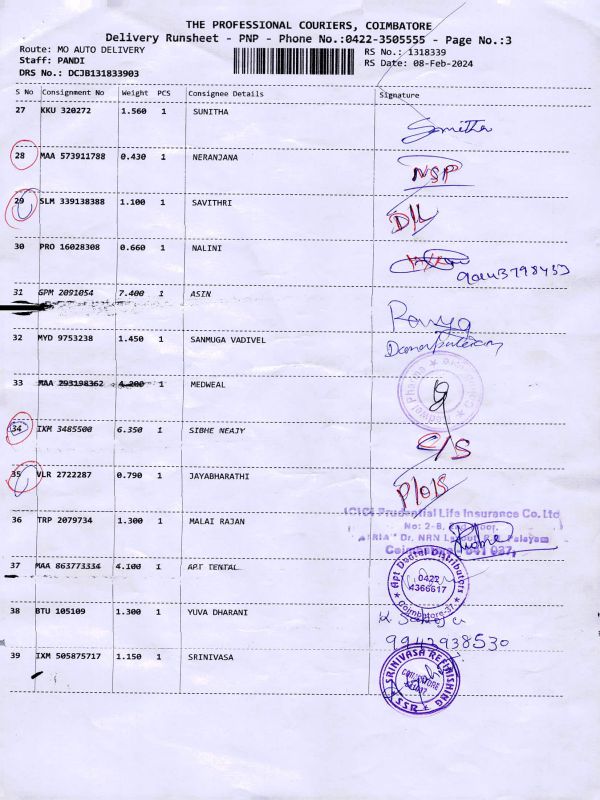 THE PROFESSIONAL COURIERS, COIMBATORE
Delivery Runsheet - PNP - Phone No.:0422-3505555 - Page No.:3
Route: MO AUTO DELIVERY RS No.: 1318339
Staff: PANDI RS Date: 08-Feb-2024
DRS No.: DCJB131833903
S No Consignment No Weight PCS Consignee Details Signature
27 KKU 320272 1.560 1 SUNITHA Sunitha
28 MAA 573911788 0.430 1 NERANJANA NSP
29 SLM 339138388 1.100 1 SAVITHRI D/L
30 PRO 16028308 0.660 1 NALINI
31 GPM 2091054 7.400 1 ASIN Ramya
32 MYD 9753238 1.450 1 SANMUGA VADIVEL
33 MAA 293198362 4.200 1 MEDWEAL
34 IKM 3485500 6.350 1 SIBHE NEAJY C/S
35 VLR 2722287 0.790 1 JAYABHARATHI P/O/S
36 TRP 2079734 1.300 1 MALAI RAJAN
ICICI Prudential Life Insurance Co. Ltd
No: 2-B,
Dr. NRN
Palayam
Coimbatore - 641 037.
37 MAA 863773334 4.100 1 APT DENTAL
Apt Dental Distributors
0422
4366617
Coimbatore-37
38 BTU 105109 1.300 1 YUVA DHARANI
9942938530
39 IXM 505875717 1.150 1 SRINIVASA
SRINIVASA REFINISHING
SSR